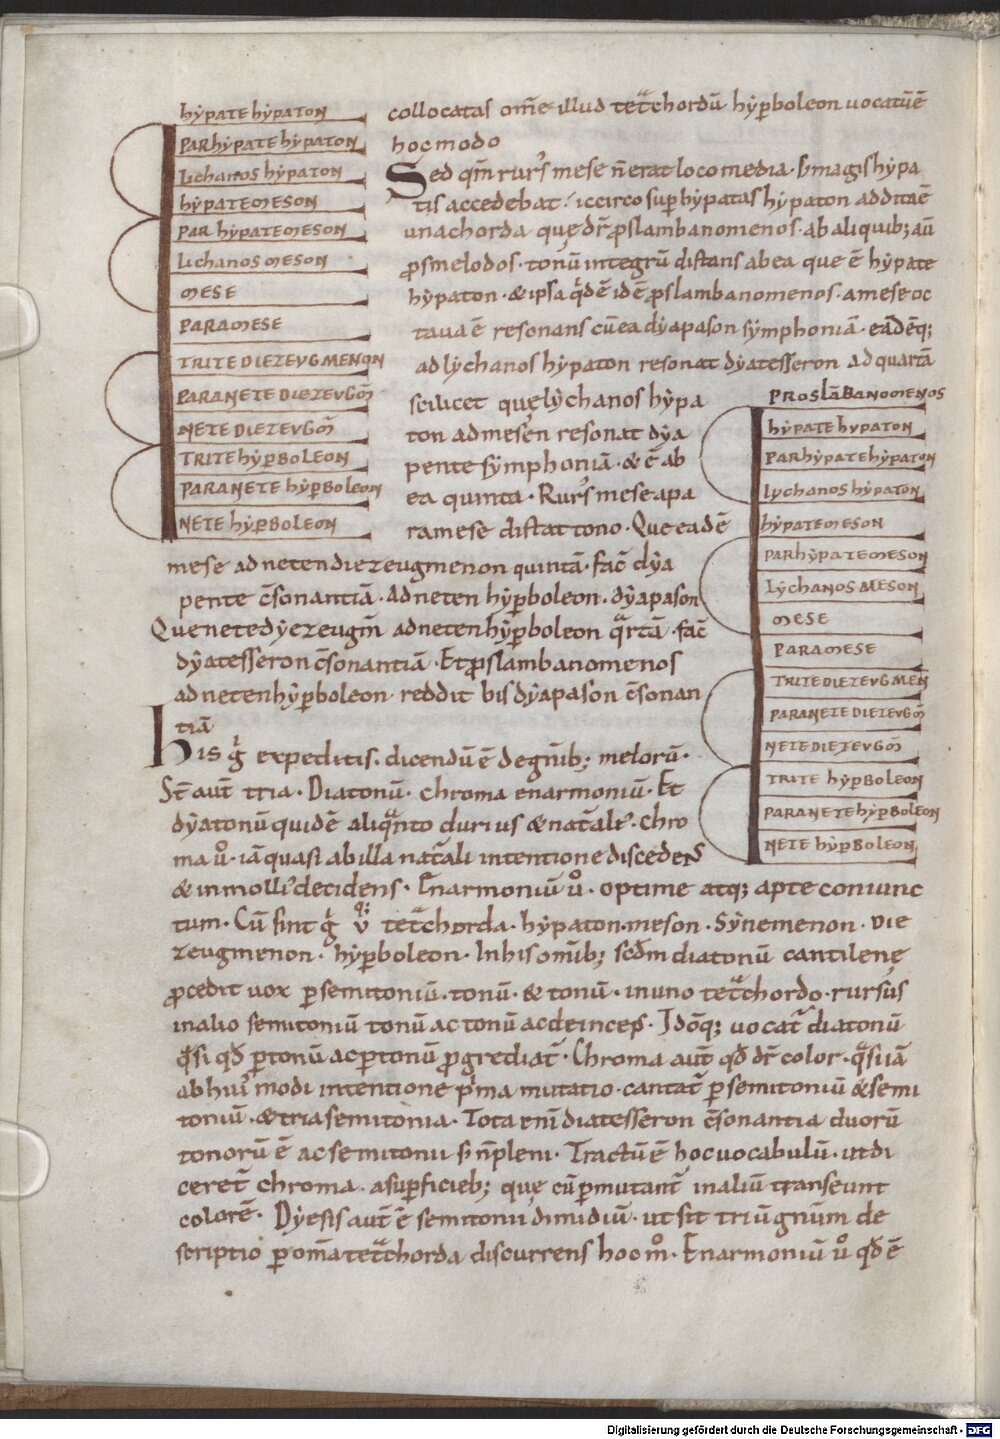 hẏpate hẏpaton
parhẏpate hẏpaton
lichanos hẏpaton
hẏpate meson
par hẏpate meson
lichanos meson
mese
paramese
trite diezeugmenon
paranete diezeugm̄
nete diezeugm̄
trite hẏp̱boleon
paranete hẏp̱boleon
nete hẏp̱boleon
collocatas om̄e illud tetͣchordū hẏp̱boleon uocatū ē
hoc modo
Sed qm̄ rurs' mese n̄ erat loco media · s; magis hẏpa
tis accedebat · iccirco sup̱ hẏpatas hẏpaton addita ē
una chorda quę dr̄ ꝓslambanomenos · ab aliquib; aū
ꝓsmelodos · tonū integrū distans ab ea que ē hẏpate
hẏpaton · & ipsa qͥdē id ē ꝓslambanomenos · a mese oc
taua ē resonans cū ea dẏapason sẏmphoniā · eadēq;
ad lẏchanos hẏpaton resonat dẏatesseron ad quartā
scilicet quę lẏchanos hẏpa
ton ad mesen resonat dẏa
pente sẏmphoniā · & ē ab
ea quinta · Rurs' mese a pa
ramese distat tono · Que eadē
mese ad neten diezeugmenon quintā · fac̄ dẏa
pente c̄sonantiā · Ad neten hẏp̱boleon · dẏapason
Que nete dẏezeugm̄ ad neten hẏp̱boleon qͣrtā · fac̄
dẏatesseron c̄sonantiā · Et ꝓslambanomenos
ad neten hẏp̱boleon · reddit bis dẏapason c̄sonan
tiā
proslābanomenos
hẏpate hypaton
parhẏpate hẏpaton
lychanos hẏpaton
hẏpate meson
parhẏpate meson
lẏchanos meson
mese
paramese
trite diezeugmen
paranete diezeugm̄
nete diezeugm̄
trite hẏp̱boleon
paranete hẏp̱boleon
nete hẏp̱boleon
His gͥ expeditis · dicendū ē de gn̄ib; melorū ·
S̄t aut̄ tria · Diatonū · chroma enarmoniū · Et
dẏatonū quidē aliqͣnto durius & nat̄ale · chro
ma uͦ · iā quasi ab illa nat̄ali intentione discedens
& in molli' decidens · Enarmoniū uͦ · optime atq; apte coniunc
tum · Cū sint gͥ v q; tetͣchorda · hẏpaton · meson · Sẏnemenon · die
zeugmenon · hẏp̱boleon · In his om̄ib; scd̄m diatonū cantilene
ꝓcedit uox p̱ semitoniū · tonū · & tonū · in uno tetͣchordo · rursus
in alio semitoniū tonū ac tonū ac deinceps · Idōq; uocat̄ diatonū
qͣsi qd̄ p̱ tonū ac p̱ tonū ꝓgrediat̄ · Chroma aut̄ qd̄ dr̄ color · qͣsi iā
ab hui' modi intentione pͥma mutatio · cantat̄ p̱ semitoniū & semi
toniū · & tria semitonia · Tota eni diatesseron c̄sonantia duorū
tonorū ē ac semitonii s; n̄ pleni · Tractū ē hoc uocabulū · ut di
ceret̄ chroma · a sup̱ficieb; que cū p̱mutant̄ in aliū transeunt
colorē · Dẏesis aut̄ ē semitonii dimidiū · ut sit triū gn̄um de
scriptio p̱ om̄a tetͣchorda discurrens hoc mͦ · Enarmoniū uͦ qd̄ ē
Digitalisierung gefördert durch die Deutsche Forschungsgemeinschaft - DFG